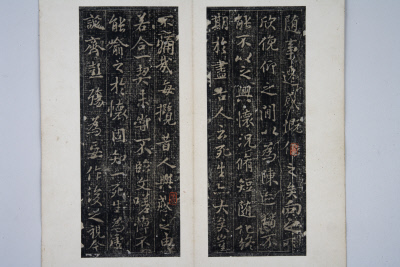 随事迁感慨係之矣向之所
欣俛仰之間以為陳迹猶不
能不以之興懷況脩短随化終
期於盡古人云死生亦大矣豈
不痛哉每攬昔人興感之由
若合一契未嘗不臨文嗟悼不
能喻之於懷固知一死生為虛
誕齊彭殤為妄作後之視今